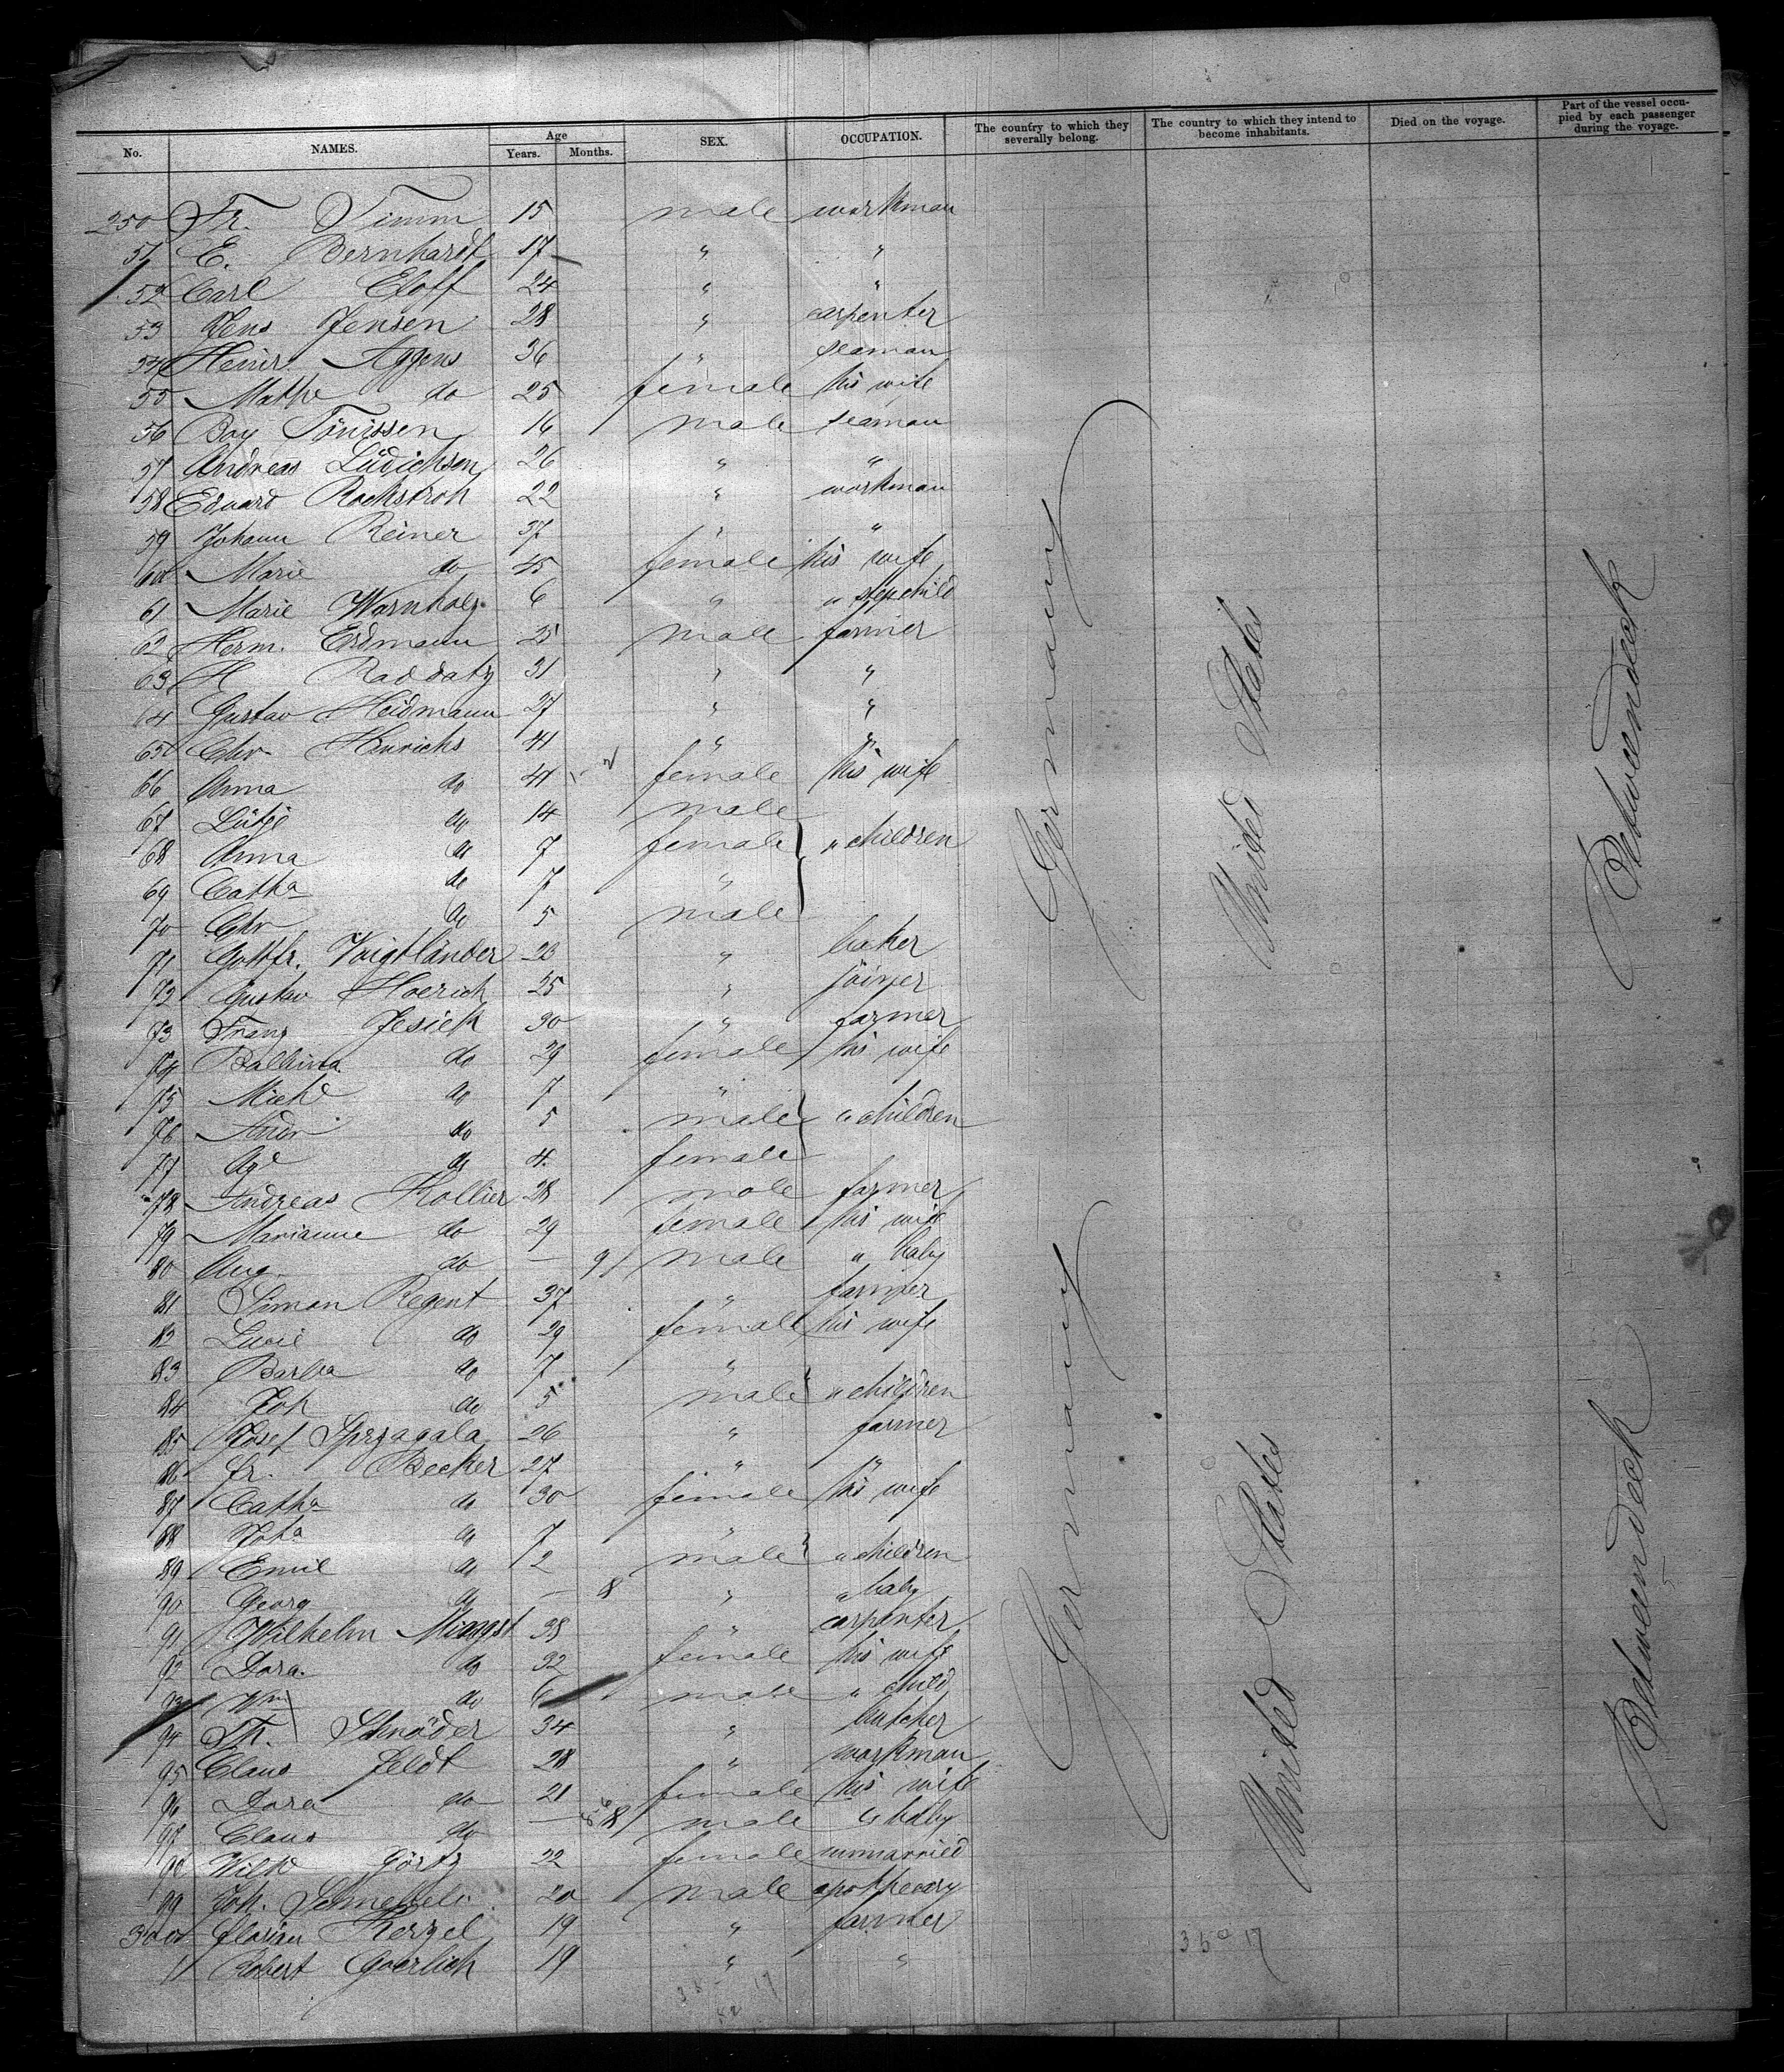 No. NAMES. Age Years. Months. SEX. OCCUPATION. The country to which they severally belong. The country to which they intend to become inhabitants. Died on the voyage. Part of the vessel occupied by each passenger during the voyage.
250 Fr. Timm 15 male workman
51 E. Bernhardt 17 " "
52 Carl Eloff 24 " "
53 Jens Jensen 28 " carpenter
54 Heinr. Aggens 36 " seaman
55 Mathe do 25 female his wife
56 Boy Tönissen 16 male seaman
57 Andreas Lüdichsen 26 " "
58 Eduard Rockstroh 22 " workman
59 Johann Reiner 37 " "
60 Marie do 45 female his wife
61 Marie Warnholz 6 " " stepchild
62 Herm. Erdmann 25 male farmer
63 H Raddatz 31 " "
64 Gustav Heidmann 27 " "
65 Chr Hinrichs 41 " "
66 Anna do 41 female his wife
67 Lütje do 14 male
68 Anna do 7 female " children
69 Catha do 7 "
70 Chr do 5 male
71 Gottfr. Voigtländer 26 " baker
72 Gustav Hoerich 25 " joiner
73 Franz Jesiek 30 " farmer
74 Balbina do 29 female his wife
75 Mich do 7 "
76 Andr do 5 male " children
77 Age do 4 female
78 Andreas Kollier 28 male farmer
79 Marianne do 29 female his wife
80 Aug. do — 9 male " baby
81 Simon Regent 37 " farmer
82 Lucie do 29 female his wife
83 Barba do 7 "
84 Joh do 5 male " children
85 Josef Sprzagala 26 " farmer
86 Fr. Becker 27 " "
87 Catha do 30 female his wife
88 Joha do 7 "
89 Emil do 2 male " children
90 Georg do — 8 " " baby
91 Wilhelm Mingst 38 " carpenter
92 Dora do 32 female his wife
93 Wm do 6 male " child
94 Th. Schröder 34 " butcher
95 Claus Feldt 28 " workman
96 Dora do 21 female his wife
97 Claus do — 8 male " baby
98 Wilh Görtz 22 female unmarried
99 Joh. 20 male apothecary
300 Florian Kerzel 19 " farmer
1 Robert Goerlich 19 " "
Germany
United States
Betweendeck
Germany
United States
Betweendeck